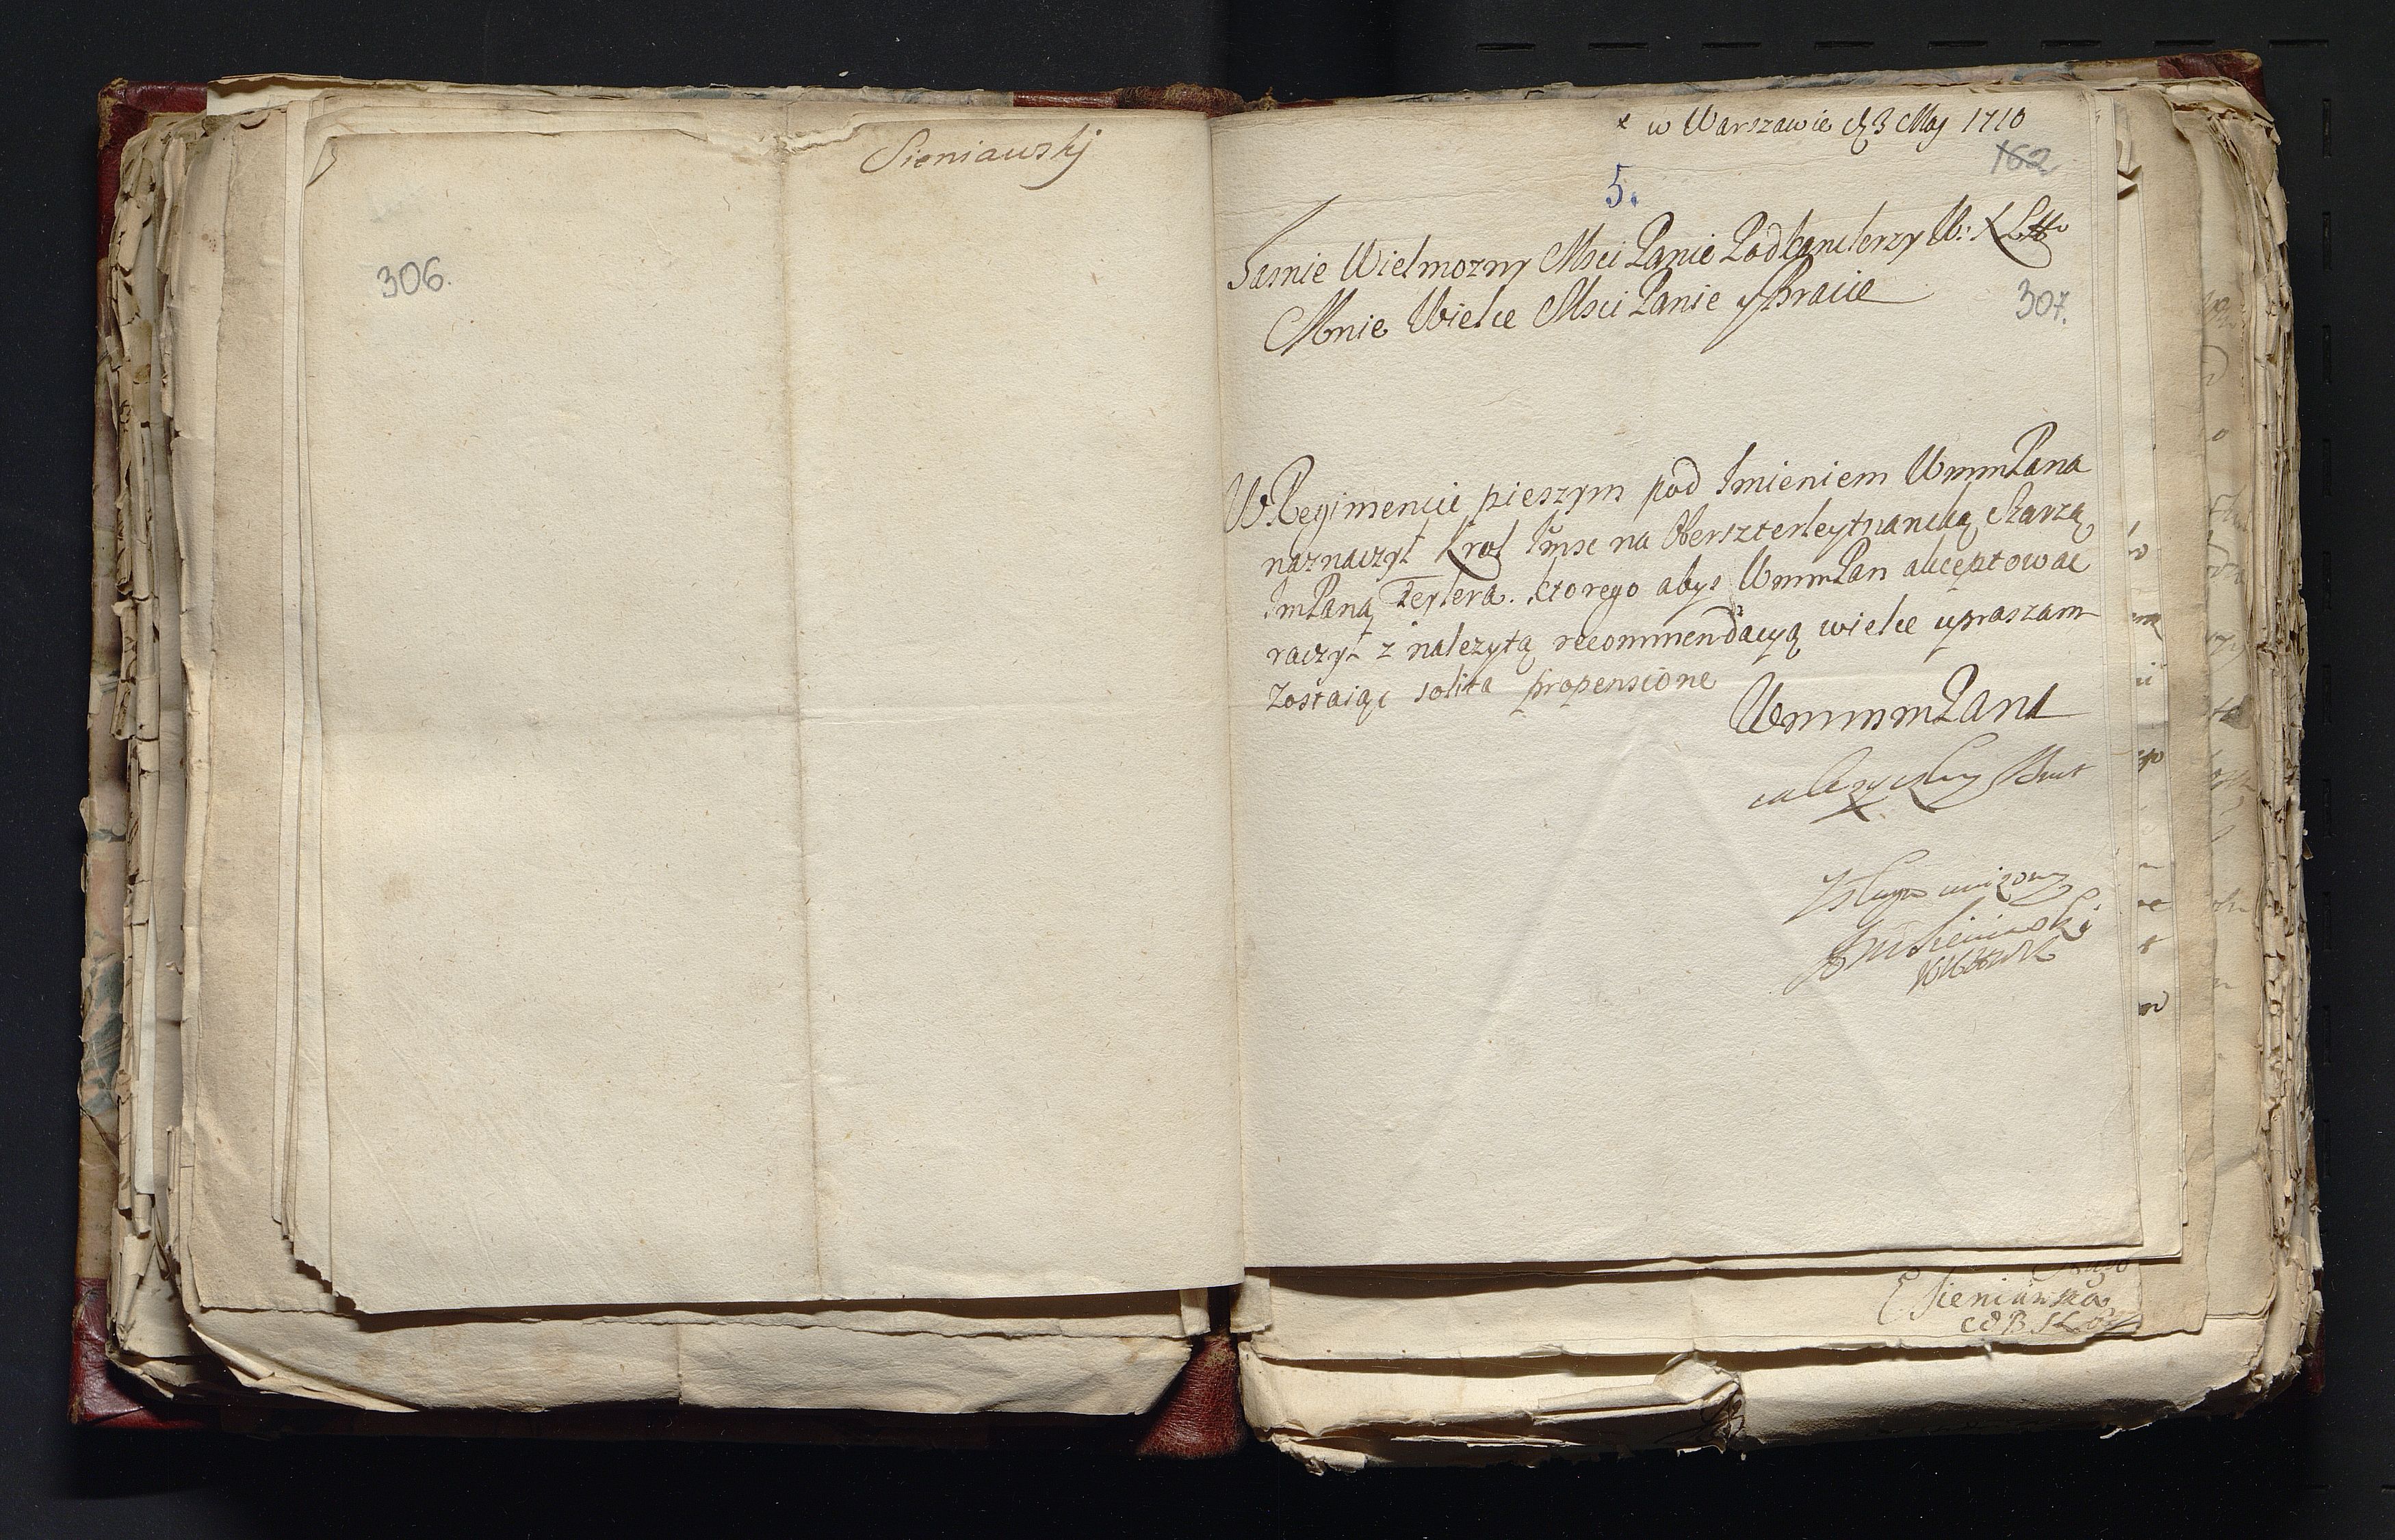 Sieniawskj
306.
x w Warszawie d 3 Maj 1710
162
5.
Jasnie Wielmozny Msci Panie Podkanclerzy W: X Litt
Mnie Wielce Msci Panie y Bracie
307.
W Regimencie pieszym pod Imieniem WmmPana
naznaczył Krol Jmsc na Oberszterleytnancką Szarzą
JmPaną Teylera. ktorego abys WmmPan akceptowac
raczył z nalezytą recommendacyą wielce upraszam
Zostaiąc solita propensione
WmmmPana
całe zyczliwy Brat
Y sługa unizony
Sieniawski
E Sieniawska